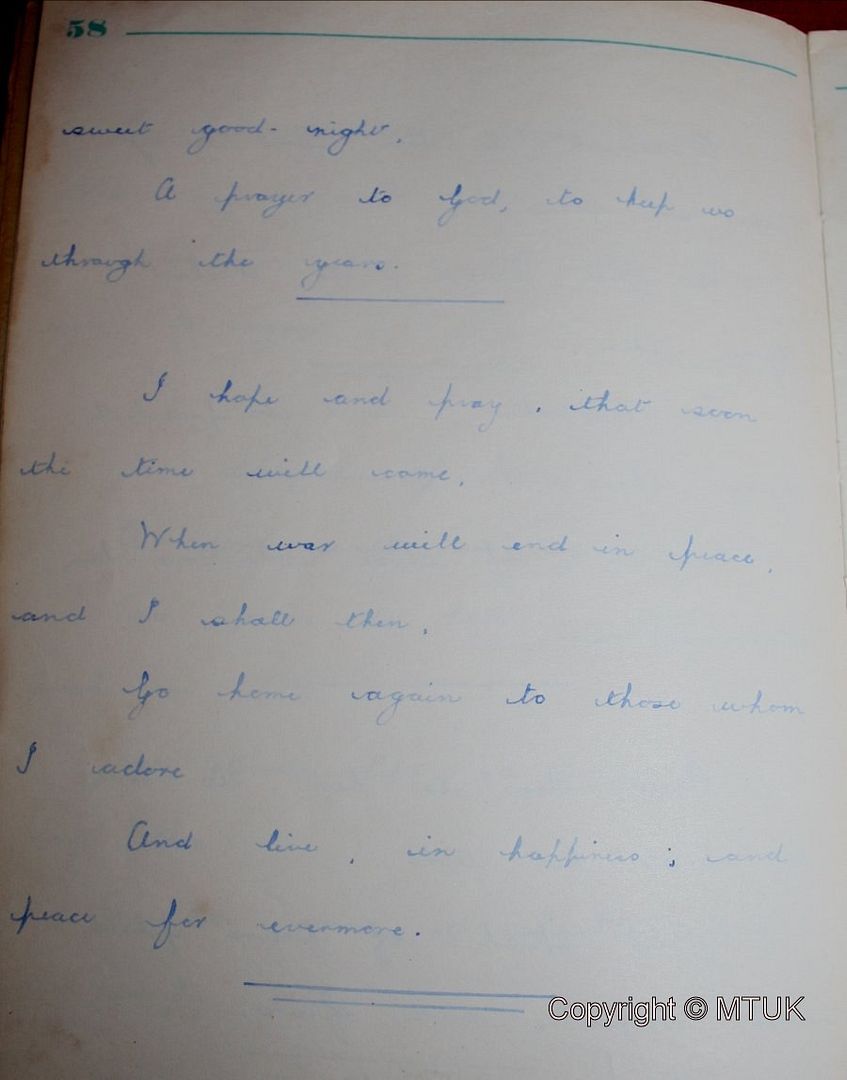 58
sweet good-night,
A prayer to God, to keep us
through the years.
I hope and pray, that soon
the time will come,
When war will end in peace,
and I shall then,
Go home again to those whom
I adore
And live, in happiness; and
peace for evermore.
Copyright © MTUK